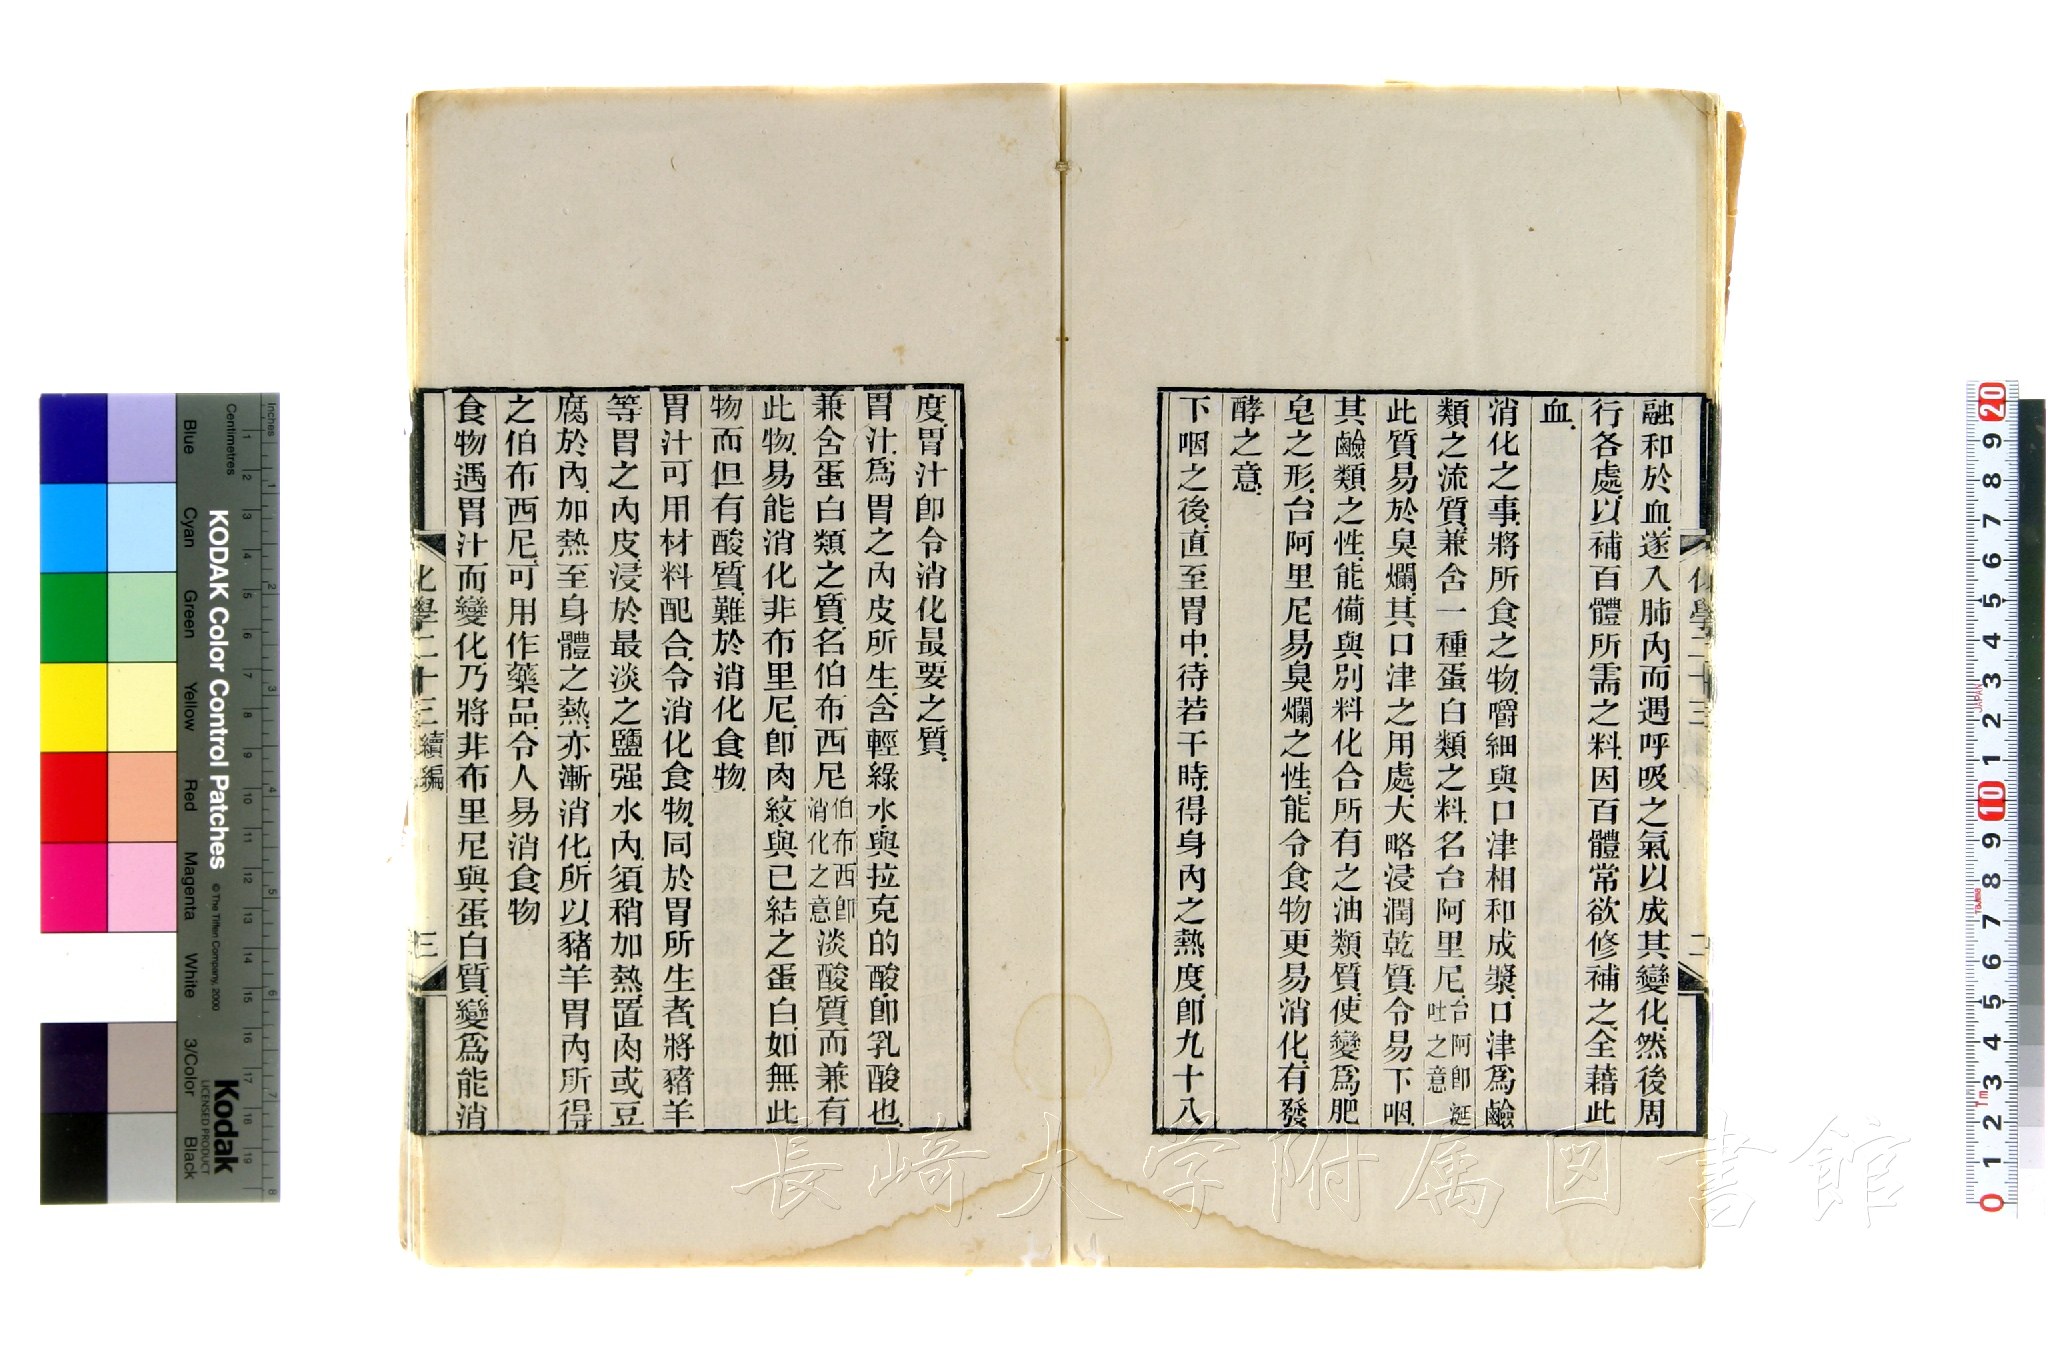 融和於血遂入肺內而遇呼吸之氣以成其變化然後周
行各處以補百體所需之料因百體常欲修補之全藉此
血
消化之事將所食之物嚼細與口津相和成漿口津爲鹼
類之流質兼含一種蛋白類之料名台阿里尼台阿卽涎吐之意
此質易於臭爛其口津之用處大略浸潤乾質令易下咽
其鹼類之性能備與別料化合所有之油類質使變爲肥
皂之形台阿里尼易臭爛之性能令食物更易消化有發
酵之意
下咽之後直至胃中待若干時得身內之熱度卽九十八
度胃汁卽令消化最要之質
胃汁爲胃之內皮所生含輕綠水與拉克的酸卽乳酸也
兼含蛋白類之質名伯布西尼伯布西卽消化之意淡酸質而兼有
此物易能消化非布里尼卽肉紋與已結之蛋白如無此
物而但有酸質難於消化食物
胃汁可用材料配合令消化食物同於胃所生者將豬羊
等胃之內皮浸於最淡之鹽强水內須稍加熱置肉或豆
腐於內加熱至身體之熱亦漸消化所以豬羊胃內所得
之伯布西尼可用作藥品令人易消食物
食物遇胃汁而變化乃將非布里尼與蛋白質變爲能消
化學二十三 續編
三
長崎大学附属図書館
KODAK Color Control Patches
© The Tiffen Company, 2000
Kodak
LICENSED PRODUCT
Inches
Centimetres
Blue
Cyan
Green
Yellow
Red
Magenta
White
3/Color
Black